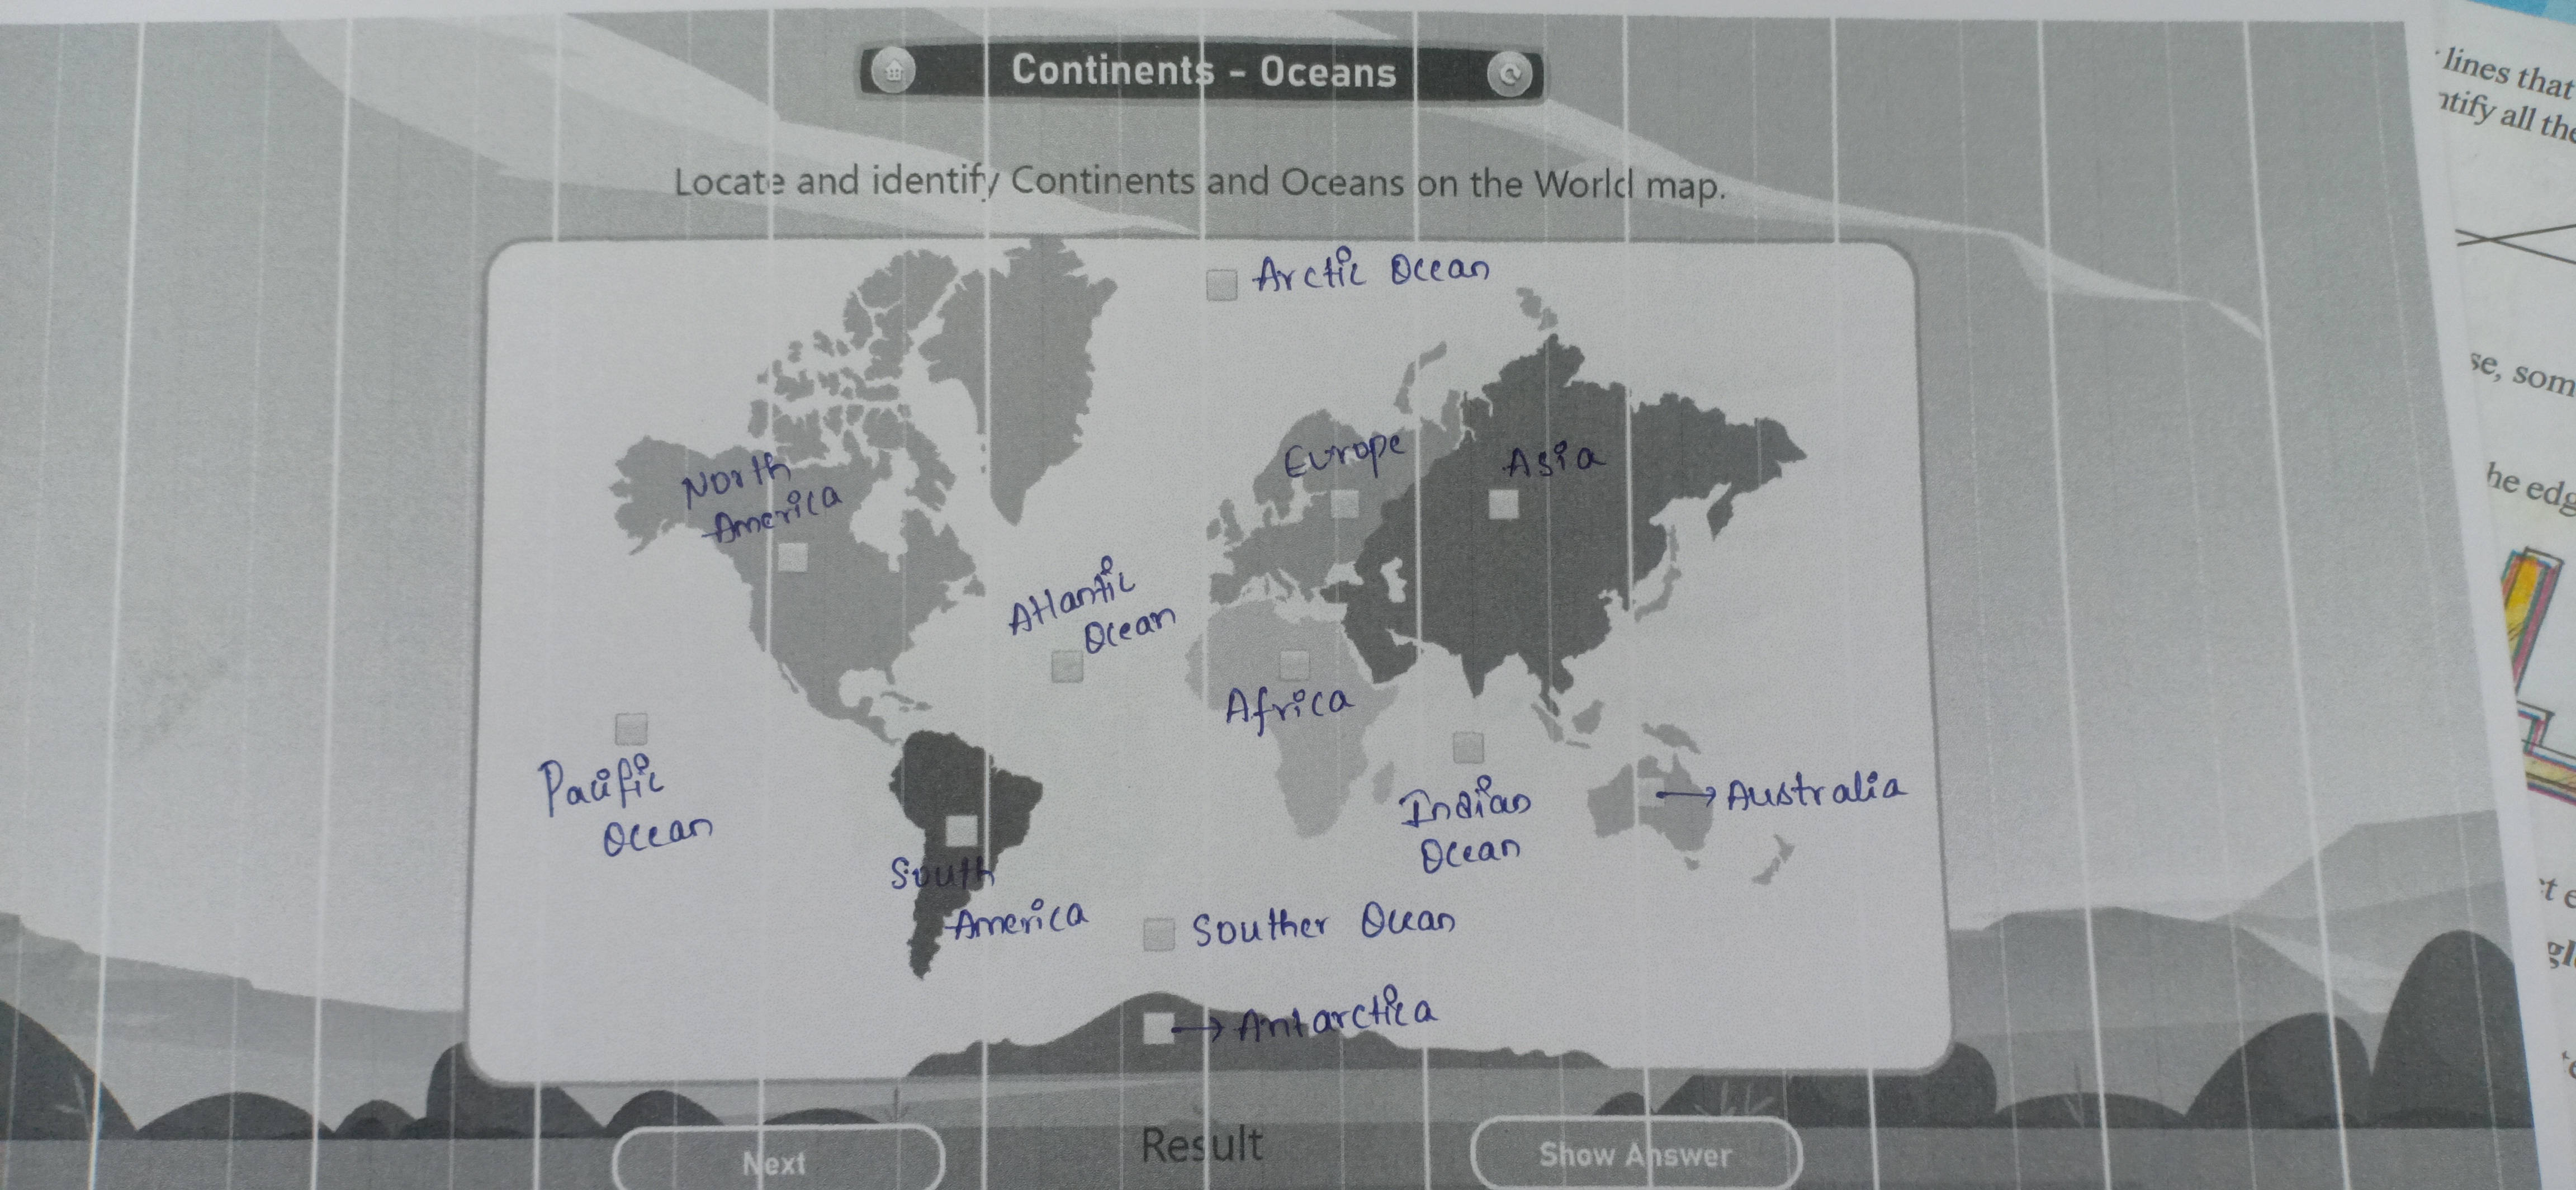 Continents - Oceans
Locate and identify Continents and Oceans on the World map.
Arctic Ocean
Europe
Asia
North
America
Atlantic
Ocean
Africa
Pacific
Ocean
Indian
Ocean
Australia
South
America
Souther Ocean
Antarctica
Next
Result
Show Answer
lines that
ntify all the
se, som
he edg